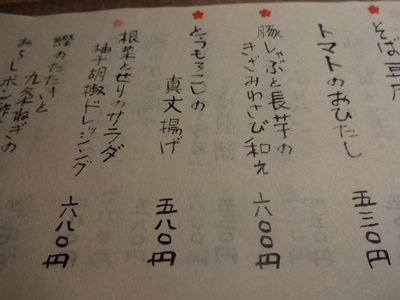 そば豆戸
トマトのおひたし
五三〇円
豚しゃぶと長芋の
きざみわさび和え
六〇〇円
とうもろこしの
真丈揚げ
五八〇円
根菜とせりのサラダ
柚子胡椒ドレッシング
六八〇円
鰹のたたきと
九条ねぎの
おろしポン酢